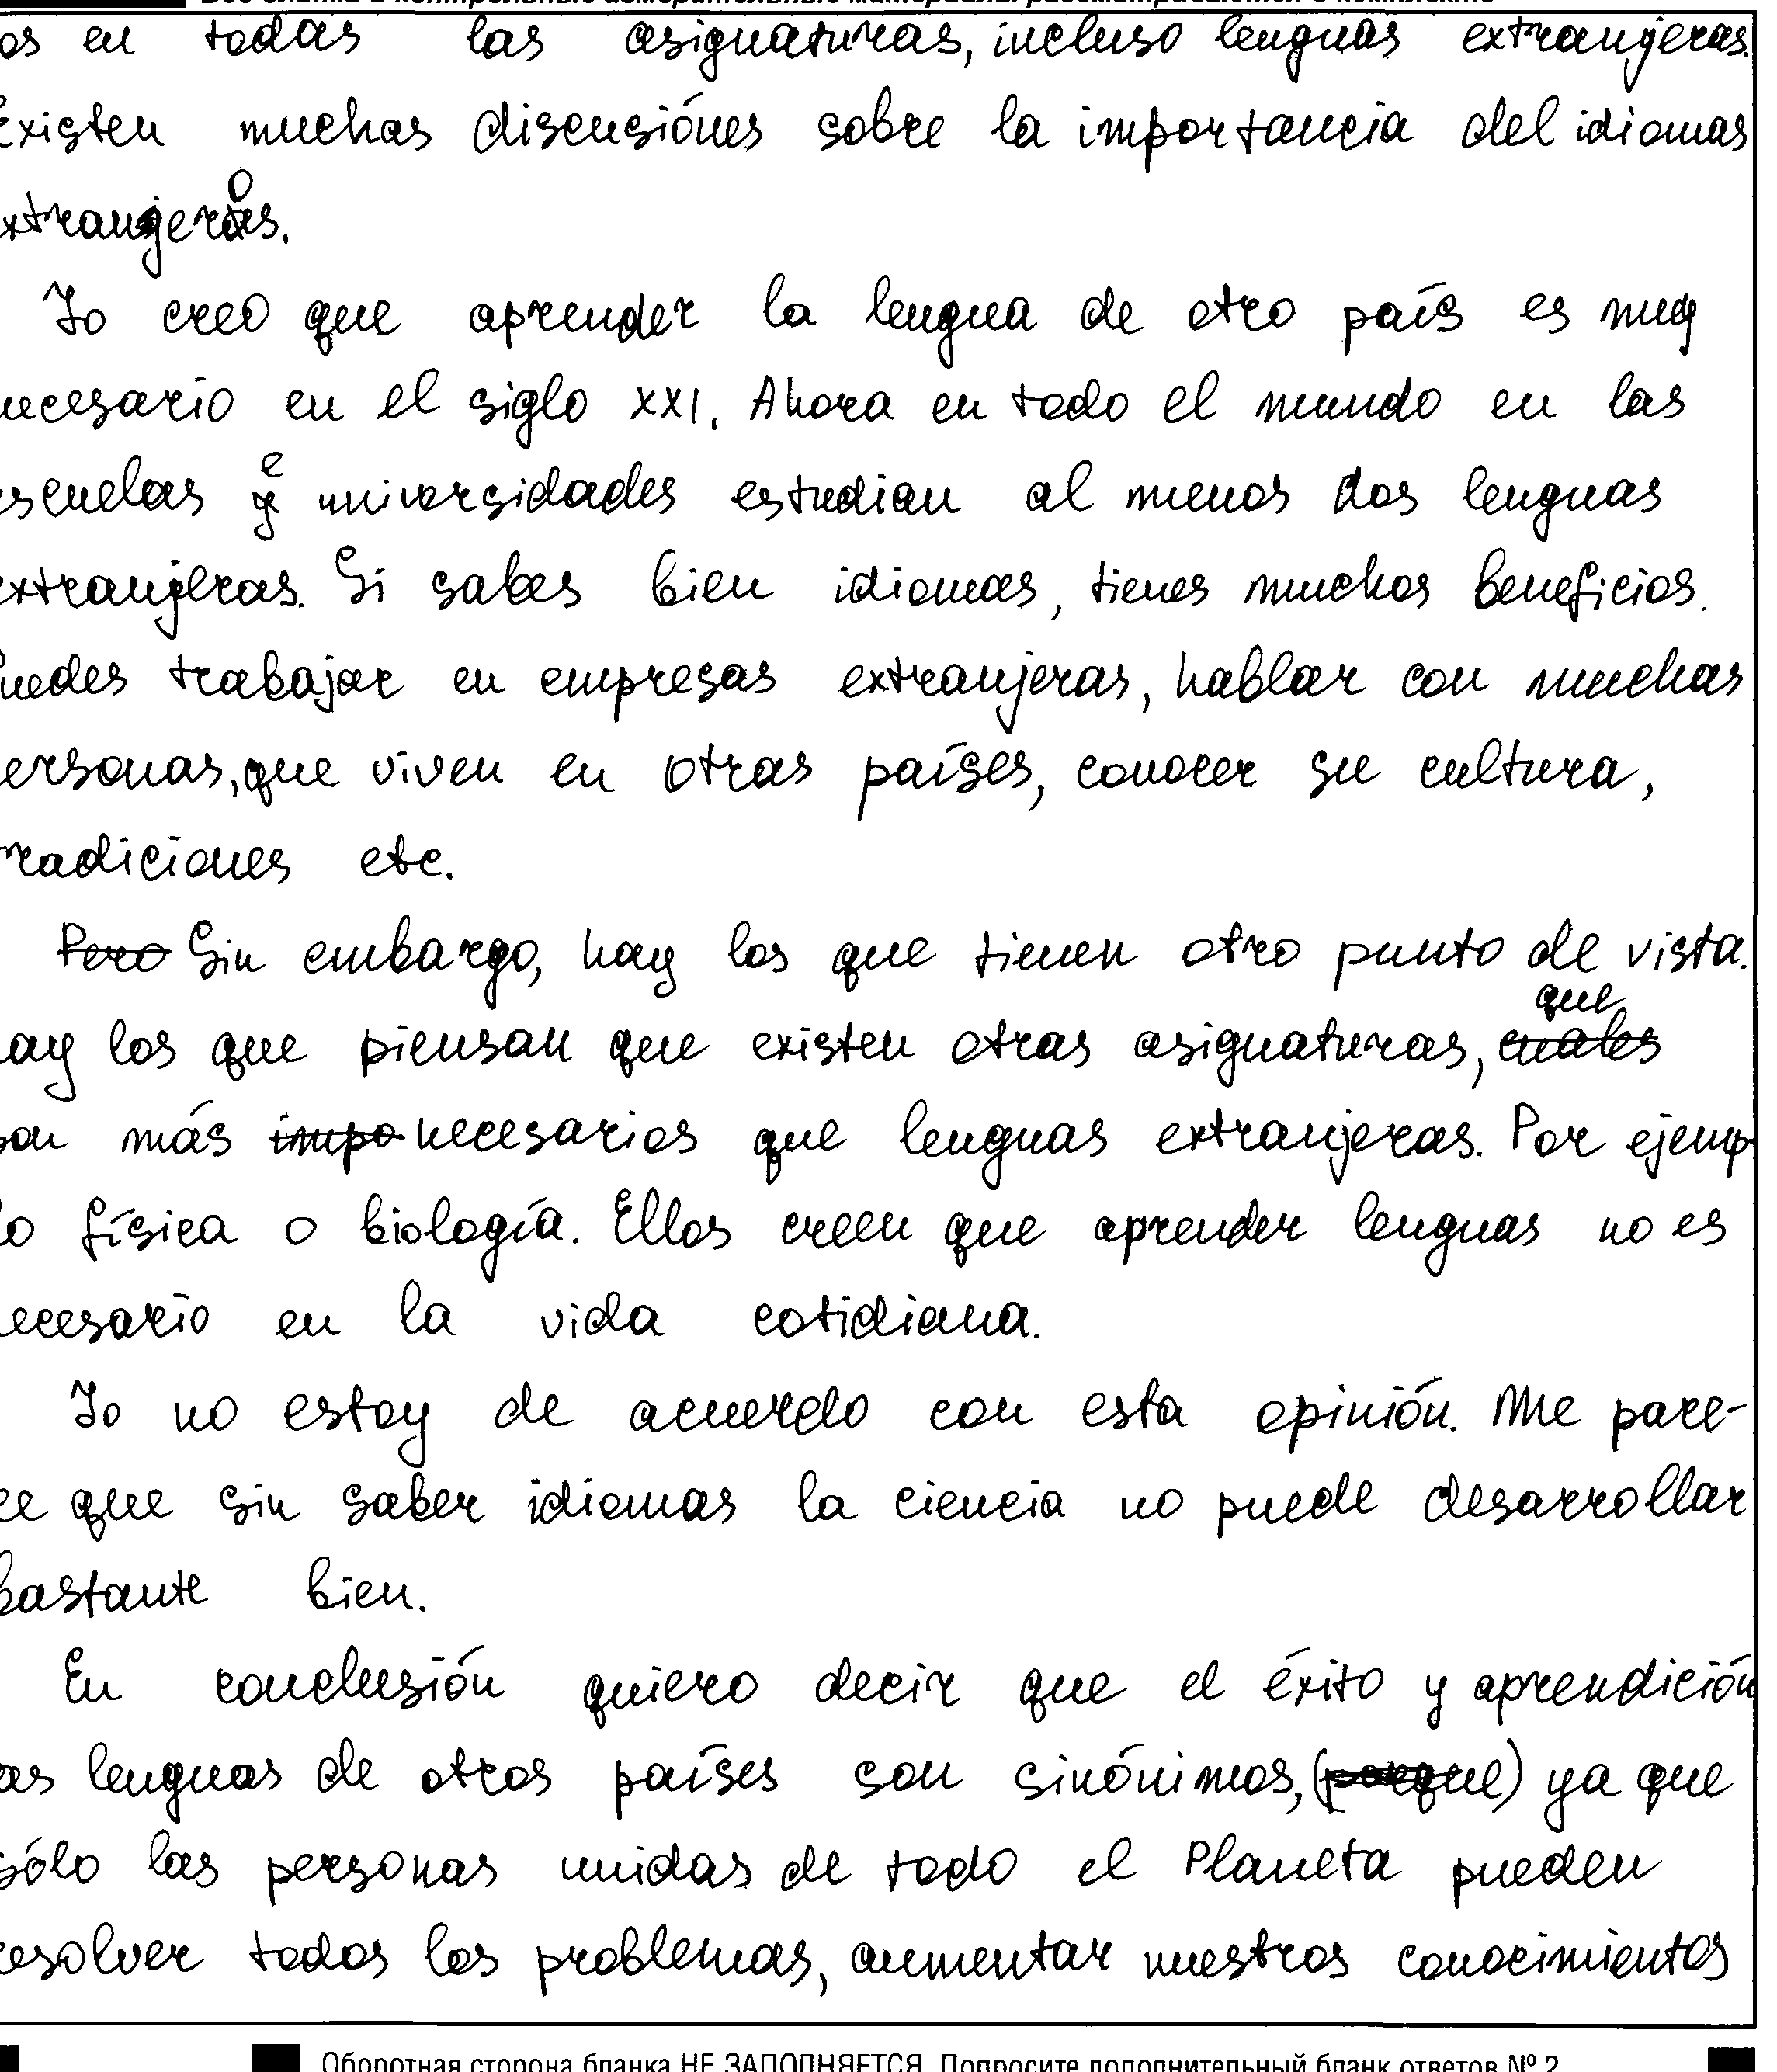 Все бланки и контрольные измерительные материалы рассматриваются в комплекте
os en todas las asignaturas, incluso lenguas extranjeras.
Existen muchas discusiónes sobre la importancia del idiomas
xtranjeros.
Yo creo que aprender la lengua de otro país es muy
necesario en el siglo XXI. Ahora en todo el mundo en las
escuelas e universidades estudian al menos dos lenguas
extranjeras. Si sabes bien idiomas, tienes muchos beneficios.
Puedes trabajar en empresas extranjeras, hablar con muchas
ersonas, que viven en otras países, conocer su cultura,
tradiciones etc.
Pero Sin embargo, hay los que tienen otro punto de vista.
ay los que piensan que existen otras asignaturas, cuales que
son más impo necesarios que lenguas extranjeras. Por ejemp-
lo física o biología. Ellos creen que aprender lenguas no es
ecesario en la vida cotidiana.
Yo no estoy de acuerdo con esta opinión. Me pare-
ce que sin saber idiomas la ciencia no puede desarrollar
bastante bien.
En conclusión quiero decir que el éxito y aprendición
as lenguas de otros países son sinónimos, (porque) ya que
sólo las personas unidas de todo el Planeta pueden
resolver todos los problemas, aumentar nuestros conocimientos
Оборотная сторона бланка НЕ ЗАПОЛНЯЕТСЯ. Попросите дополнительный бланк ответов № 2